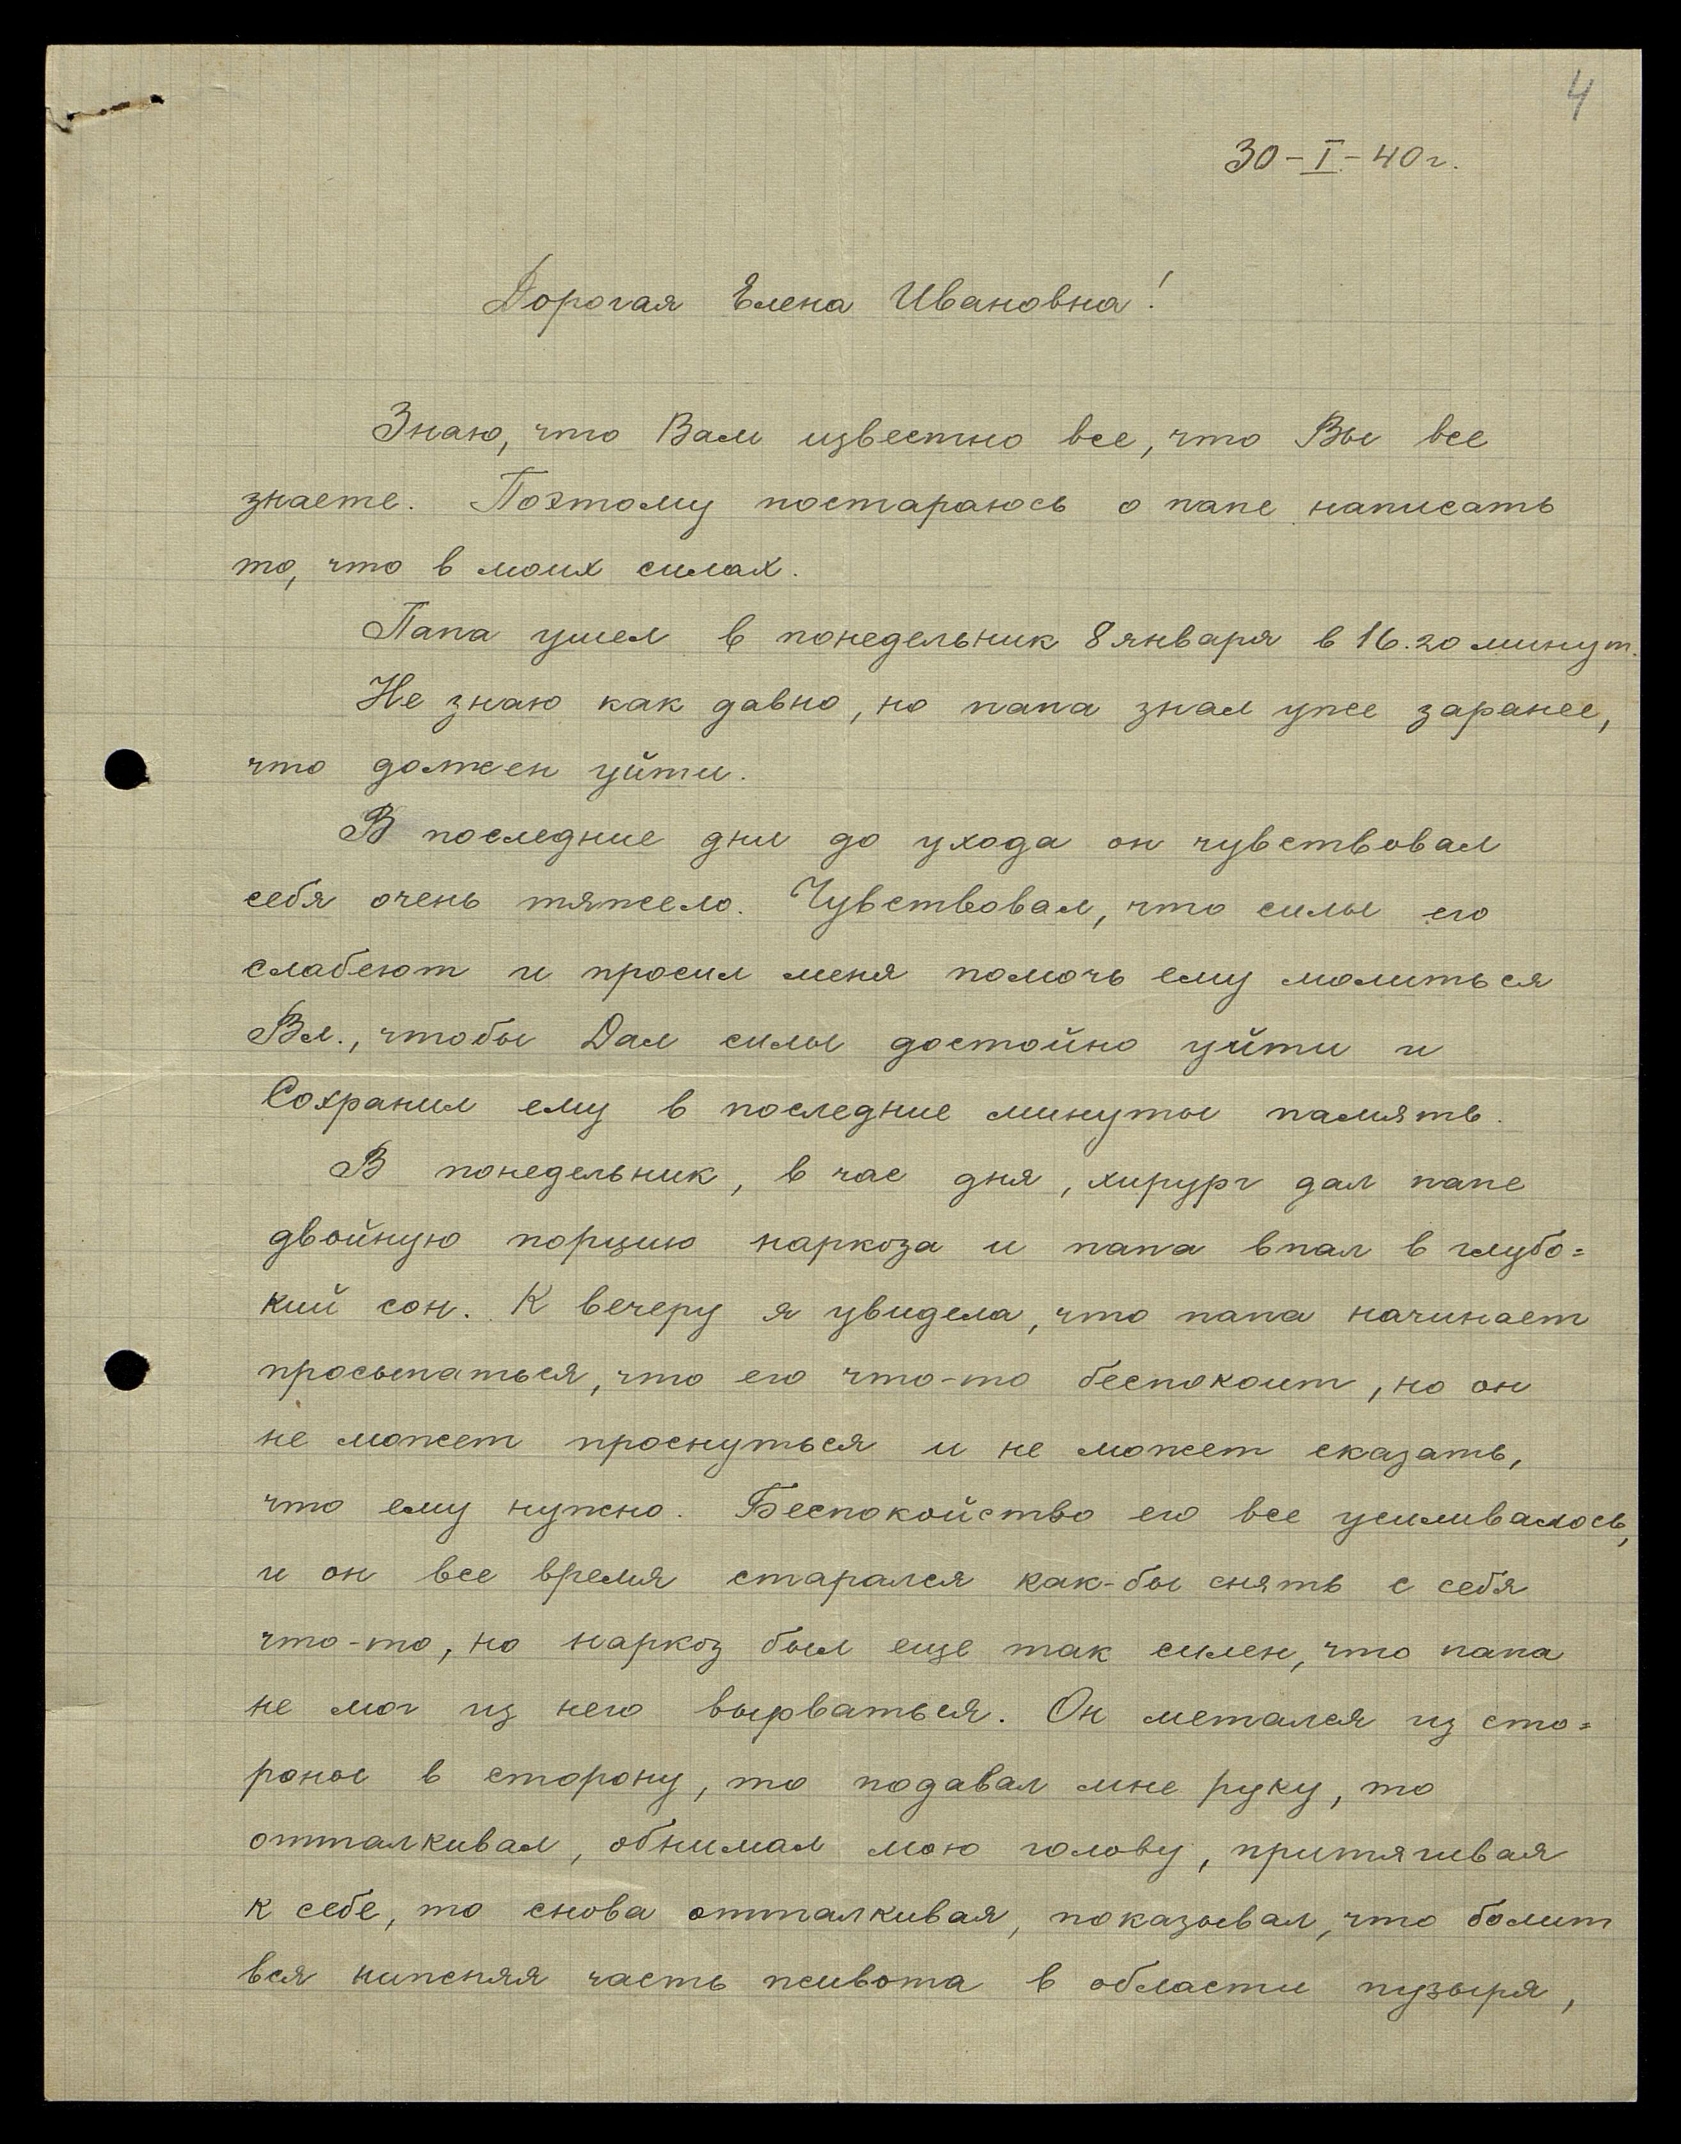 4
30-I-40г.
Дорогая Елена Ивановна!
Знаю, что Вам известно все, что Вы все
знаете. Поэтому постараюсь о папе написать
то, что в моих силах.
Папа ушел в понедельник 8 января в 16.20 минут.
Не знаю как давно, но папа знал уже заранее,
что должен уйти.
В последние дни до ухода он чувствовал
себя очень тяжело. Чувствовал, что силы его
слабеют и просил меня помочь ему молиться
Вл., чтобы Дал силы достойно уйти и
Сохранил ему в последние минуты память.
В понедельник, в час дня, хирург дал папе
двойную порцию наркоза и папа впал в глубо=
кий сон. К вечеру я увидела, что папа начинает
просыпаться, что его что-то беспокоит, но он
не может проснуться и не может сказать,
что ему нужно. Беспокойство его все усиливалось,
и он все время старался как-бы снять с себя
что-то, но наркоз был еще так силен, что папа
не мог из него вырваться. Он метался из сто=
роны в сторону, то подавал мне руку, то
отталкивал, обнимал мою голову, притягивая
к себе, то снова отталкивая, показывал, что болит
вся нижняя часть живота в области пузыря,